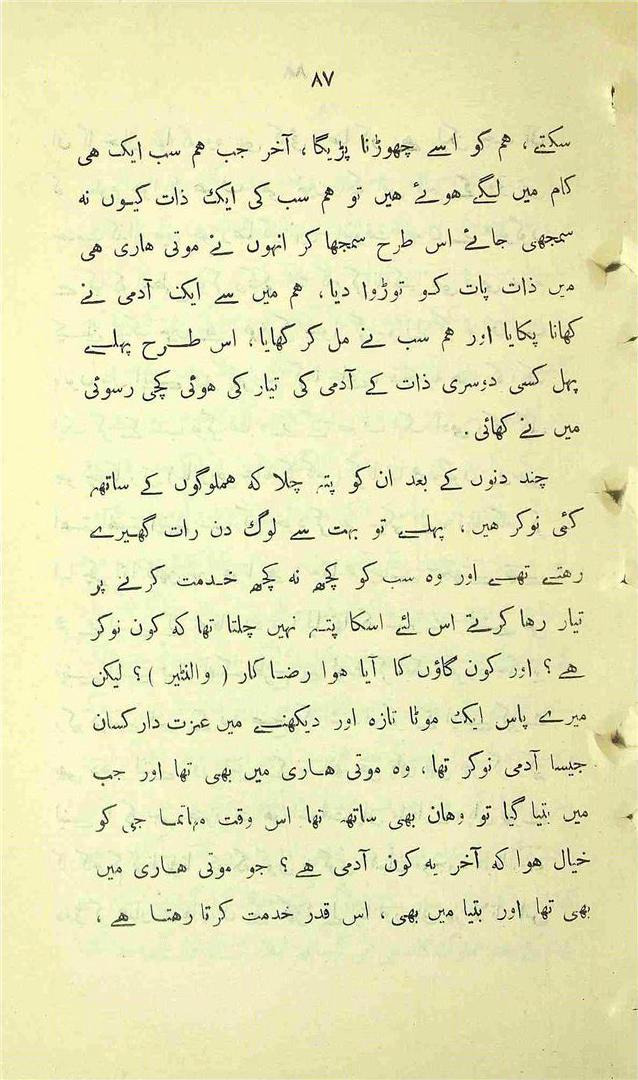 ۸۷
سکتے، هم کو اسے چھوڑنا پڑیگا، آخر جب هم سب ایک هی
کام میں لگے هوئے هیں تو هم سب کی ایک ذات کیوں نه
سمجھی جائے اس طرح سمجھا کر انہوں نے موتی هاری هی
میں ذات پات کو توڑوا دیا، هم میں سے ایک آدمی نے
کھانا پکایا اور هم سب نے مل کر کھایا، اس طرح پہلے
پہل کسی دوسری ذات کے آدمی کی تیار کی هوئی کچی رسوئی
میں نے کھائی.
چند دنوں کے بعد ان کو پته چلا که هملوگوں کے ساتھه
کئی نوکر هیں، پہلے تو بہت سے لوگ دن رات گھیرے
رهتے تھے اور وه سب کو کچھ نه کچھ خدمت کرنے پر
تیار رها کرتے اس لئے اسکا پته نہیں چلتا تھا که کون نوکر
هے؟ اور کون گاؤں کا آیا هوا رضا کار (والنٹیر)؟ لیکن
میرے پاس ایک موٹا تازه اور دیکھنے میں عزت دار کسان
جیسا آدمی نوکر تھا، وه موتی هاری میں بھی تھا اور جب
میں بتیا گیا تو وهان بھی ساتھ تھا اس وقت مہاتما جی کو
خیال هوا که آخر یه کون آدمی هے؟ جو موتی هاری میں
بھی تھا اور بتیا میں بھی، اس قدر خدمت کرتا رهتا هے،